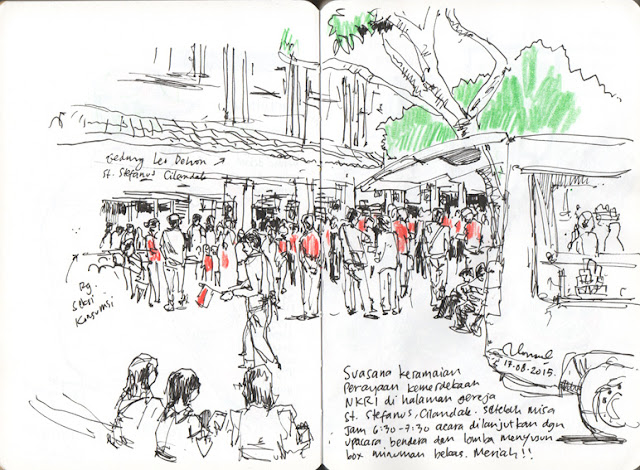 Gedung Leo Dehon →
St. Stefanus Cilandak
Rg.
Seksi
Konsumsi
17.08.2015.
Suasana keramaian
Perayaan kemerdekaan
NKRI di halaman gereja
St. Stefanus, Cilandak. setelah misa
Jam 6:30-7:30 acara dilanjutkan dgn
upacara bendera dan lomba menyusun
box minuman bekas. Meriah!!